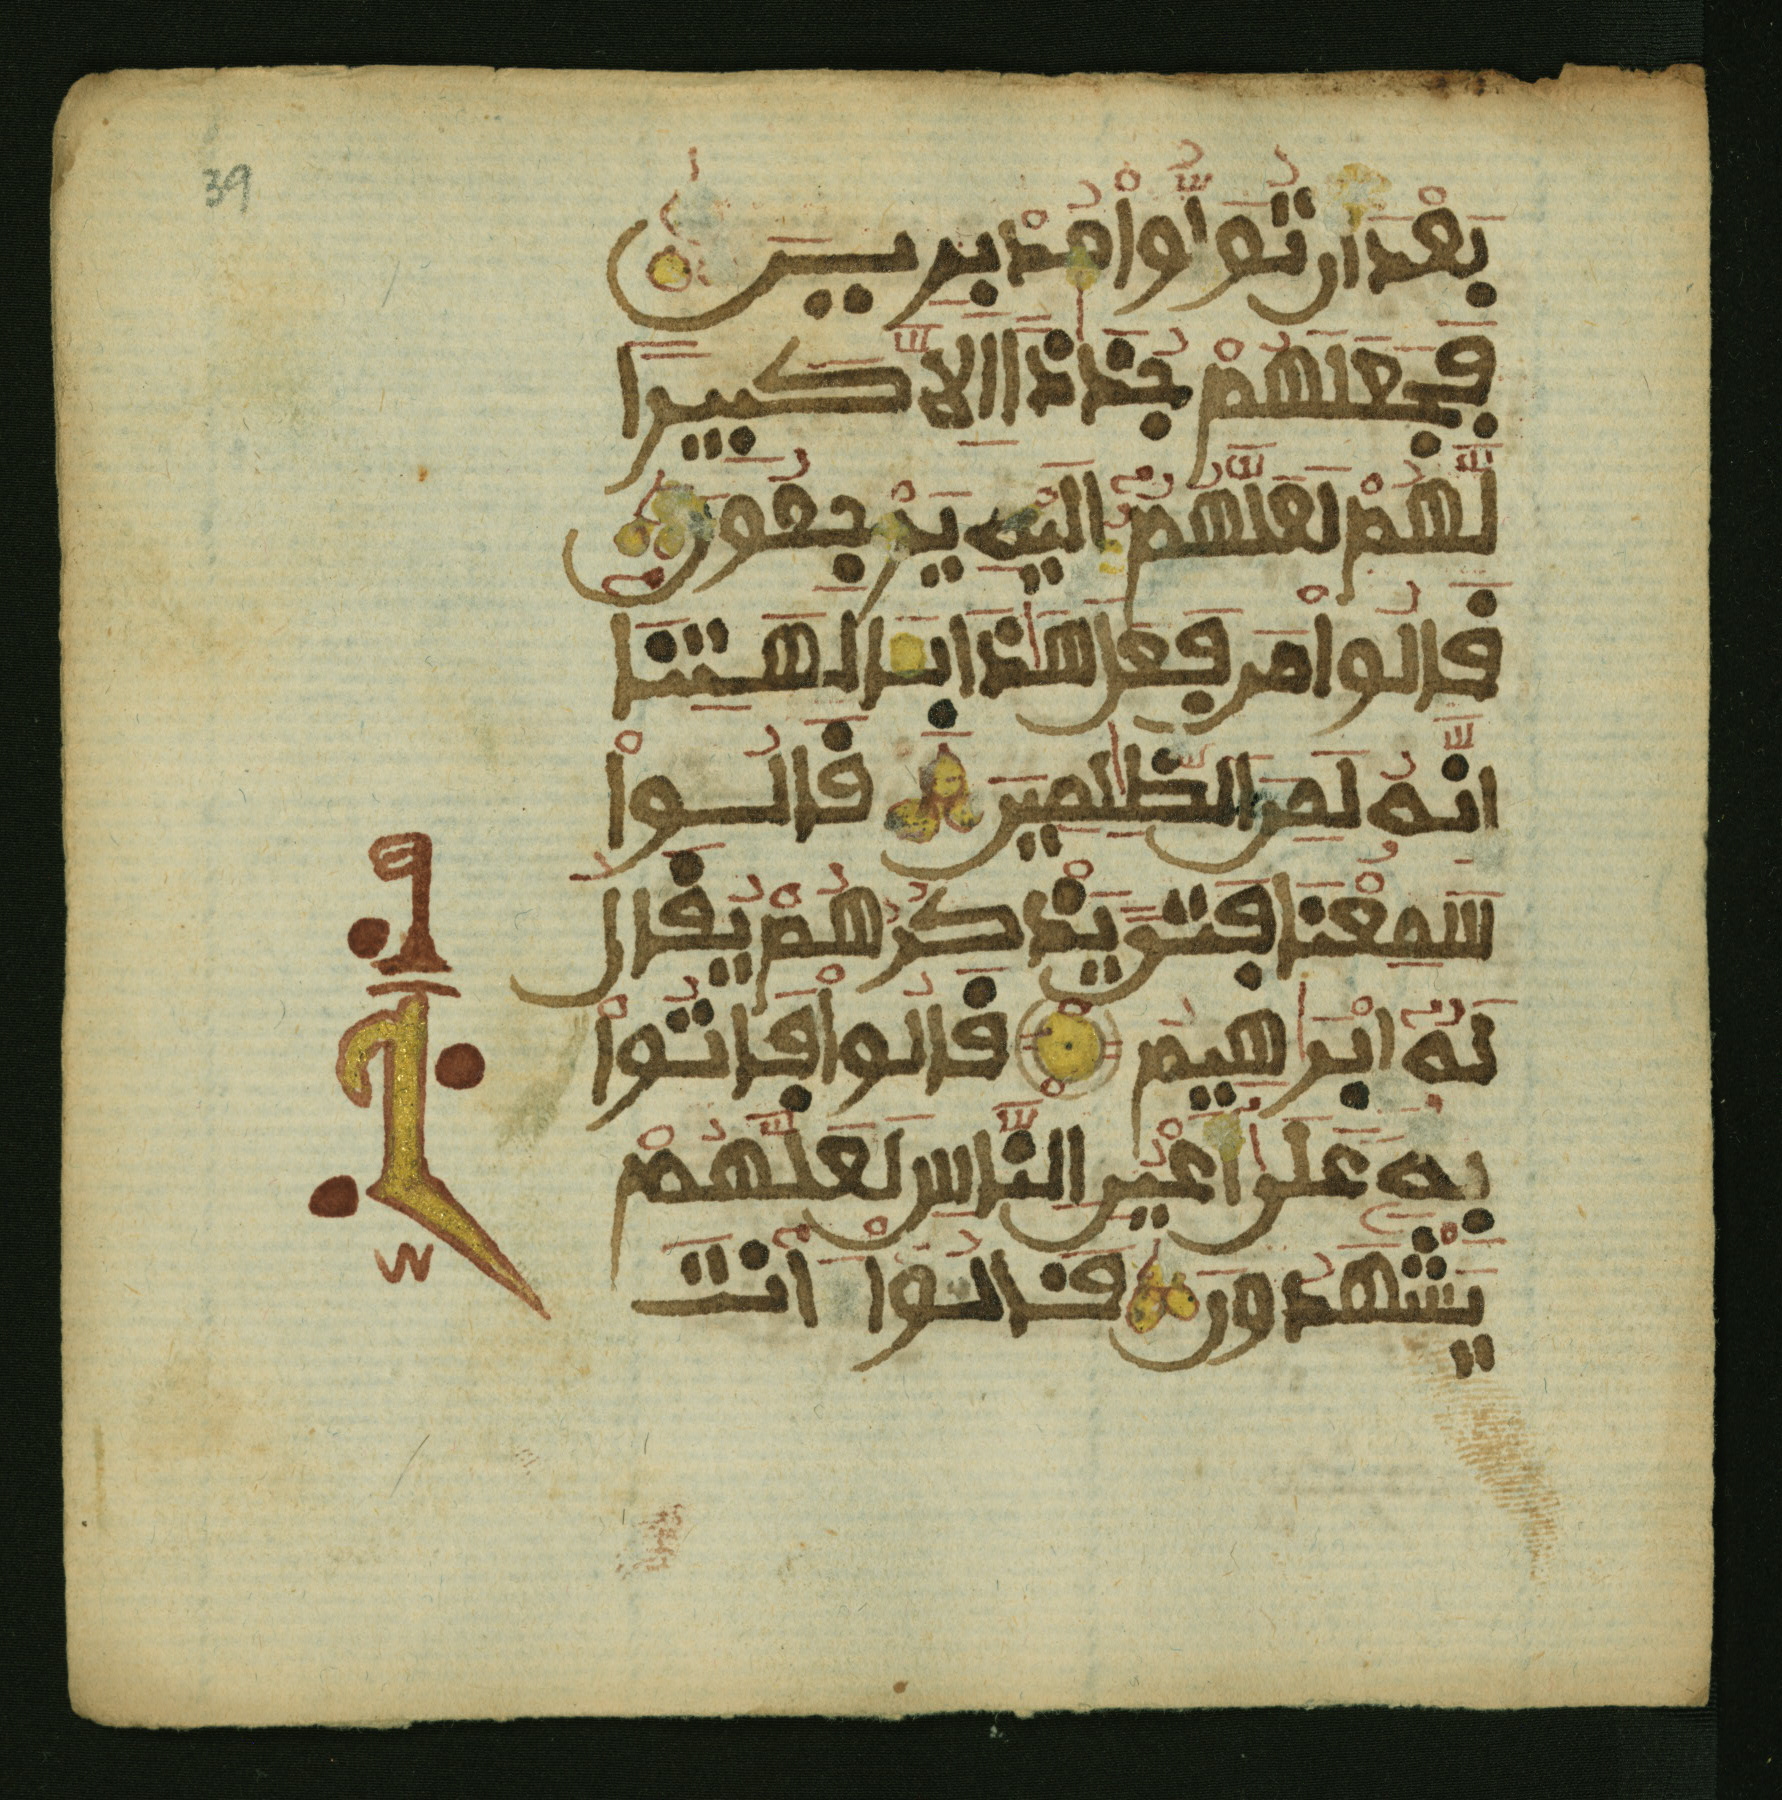 39
بَعْدَ أَن تُوَلُّوا۟ مُدْبِرِينَ
فَجَعَلَهُمْ جُذَٰذًا إِلَّا كَبِيرًا
لَّهُمْ لَعَلَّهُمُۥ إِلَيْهِ يَرْجِعُونَ
قَالُوا۟ مَن فَعَلَ هَٰذَا بِـَٔالِهَتِنَا
إِنَّهُۥ لَمِنَ ٱلظَّٰلِمِينَ قَالُوا۟
سَمِعْنَا فَتًى يَذْكُرُهُمْ يُقَالُ
لَهُۥ إِبْرَٰهِيمُ قَالُوا۟ فَاتُوا۟
بِهِۦ عَلَىٰ أَعْيُنِ ٱلنَّاسِ لَعَلَّهُمْ
يَشْهَدُونَ قَالُوا۟ ءَانتَ